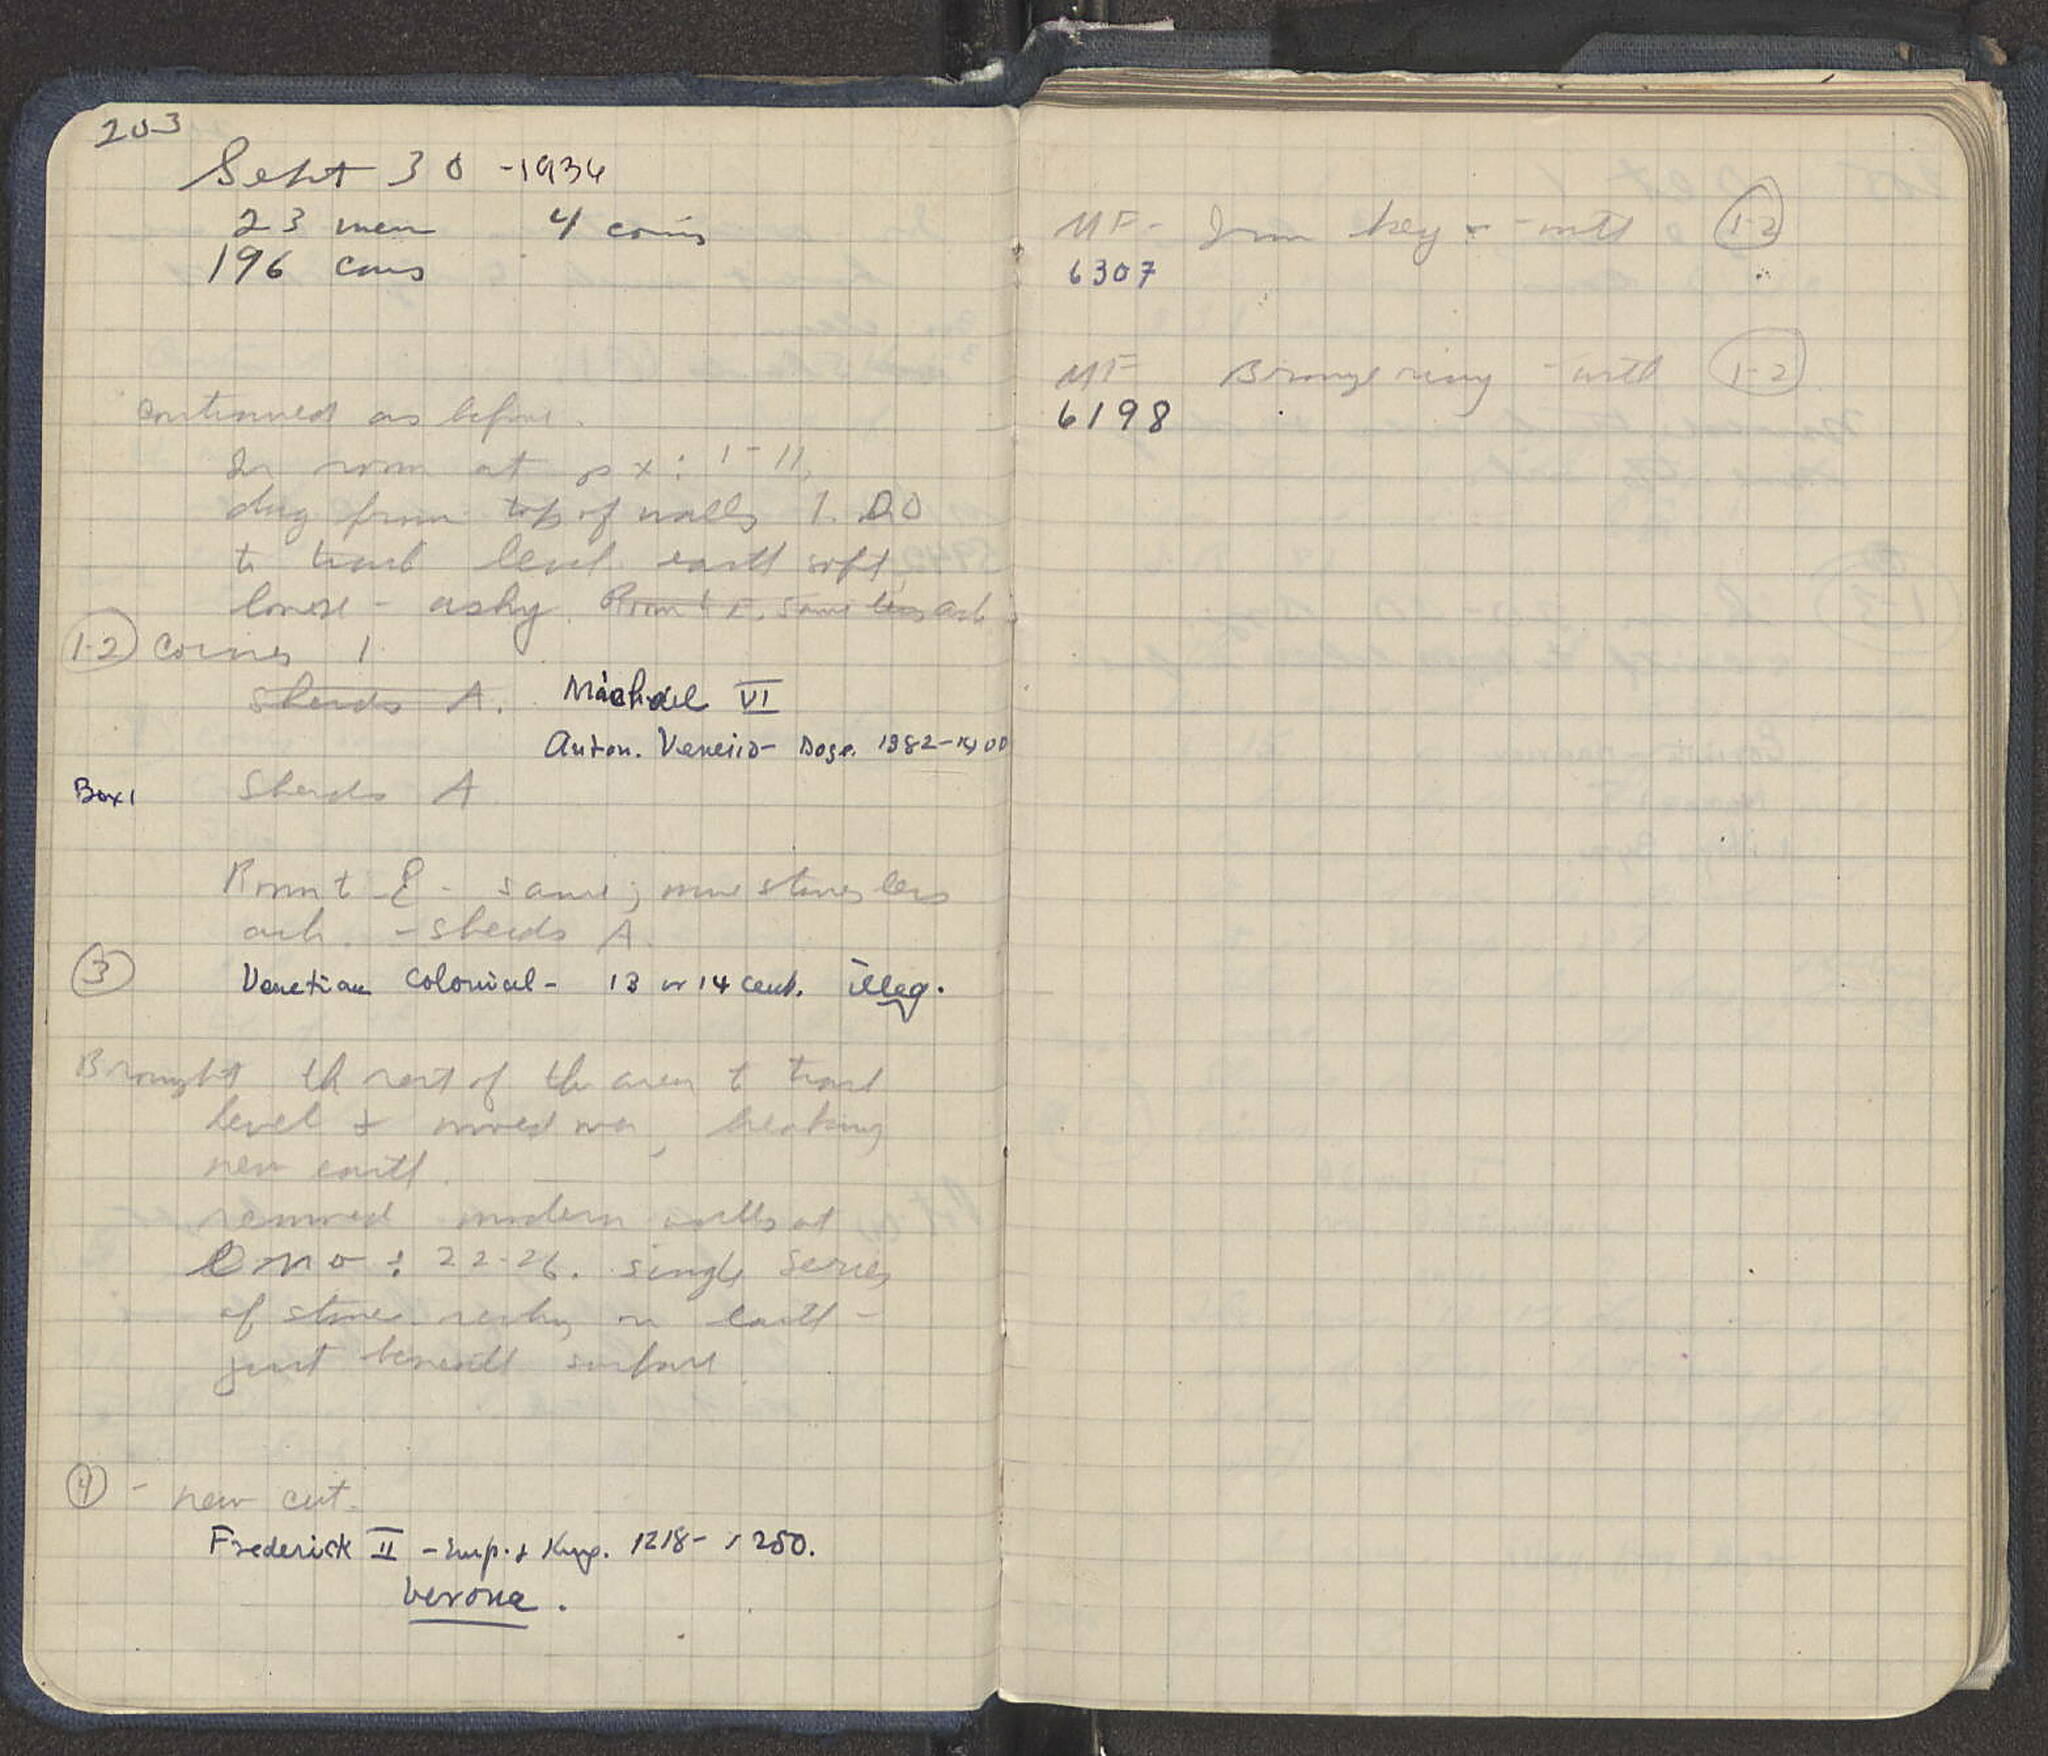 203
Sept 30 - 1936
23 men 4 coins
196 cars
continued as before.
In room at px: 1-11,
dug from top of walls 1.00
to track level. earth soft,
loose - ashy. Room t E. same less ash.
1-2 Coins 1
Sherds A. Michael VI
Anton. Veneiro - Doge. 1382-1400
Box 1 Sherds A
Room t E - same; more stones less
ash. - sherds A.
3 Venetian Colonial - 13 or 14 cent. illeg.
Brought th rest of the area to track
level & moved over, breaking
new earth.
removed modern walls at
22-26. single series
of stones resting on earth -
just beneath surface
4 - new cut.
Frederick II - Emp. & King. 1218-1250.
Verona.
MF - Iron key - with 1-2
6307
MF Bronze ring - with 1-2
6198